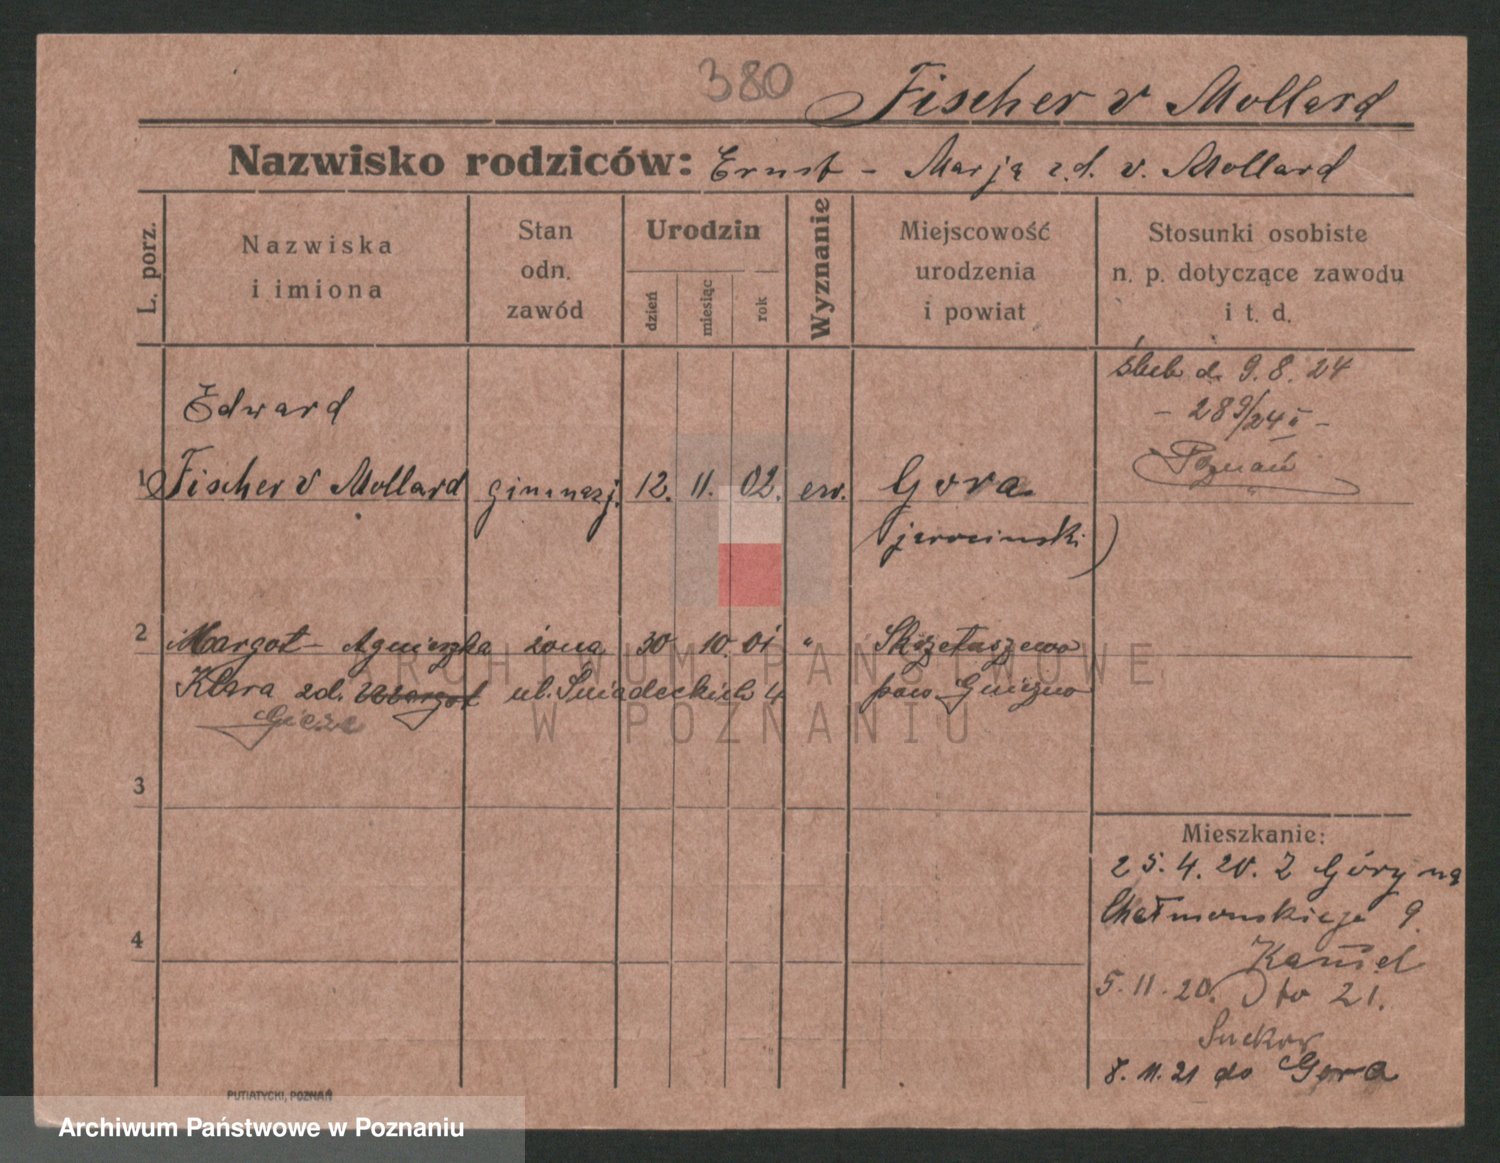 380
Fischer v Mollard
Nazwisko rodziców: Ernst - Marja z.d. v. Mollard
L. porz.
Nazwiska
i imiona
Stan
odn.
zawód
Urodzin
dzień
miesiąc
rok
Wyznanie
Miejscowość
urodzenia
i powiat
Stosunki osobiste
n. p. dotyczące zawodu
i t. d.
ślub d. 9.8.24
- 289/24 -
Poznań
Edward
1 Fischer v Mollard gimnazj. 12. 11. 02. ew. Gora
(jarocinski)
2 Margot - Agnieszka żona 30 10. 01 " Skrzetuszewo
Klara zd. Margot ul. Śniadeckich 4 pow Gniezno
Giese
3
4
Mieszkanie:
25.4.20. Z Góry na
Chełmonskiego 9.
5.11.20. to 21.
8.11.21 do Gora
PUTIATYCKI, POZNAŃ
ARCHIWUM PAŃSTWOWE
W POZNANIU
Archiwum Państwowe w Poznaniu